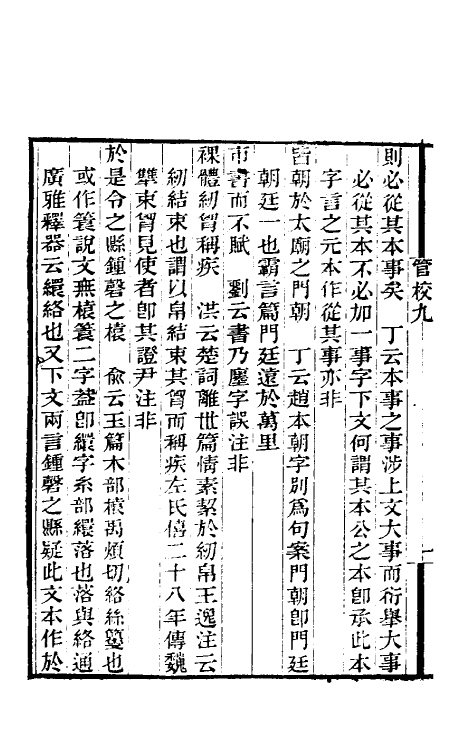 則必從其本事矣　丁云本事之事涉上文大事而衍舉大事
必從其本不必加一事字下文何謂其本公之本卽承此本
字言之元本作從其事亦非
皆朝於太廟之門朝　丁云趙本朝字別爲句案門朝卽門廷
朝廷一也霸言篇門廷遠於萬里
市書而不賦　劉云書乃廛字誤注非
裸體紉胷稱疾　洪云楚詞離世篇情素絜於紉帛王逸注云
紉結束也謂以帛結束其胷而稱疾左氏僖二十八年傳魏
犨束胷見使者卽其證尹注非
於是令之縣鍾磬之榬　俞云玉篇木部榬禹煩切絡絲籰也
或作籆說文無榬籆二字葢卽繯字糸部繯落也落與絡通
廣雅釋器云繯絡也又下文兩言鍾磬之縣疑此文本作於
管校九
一